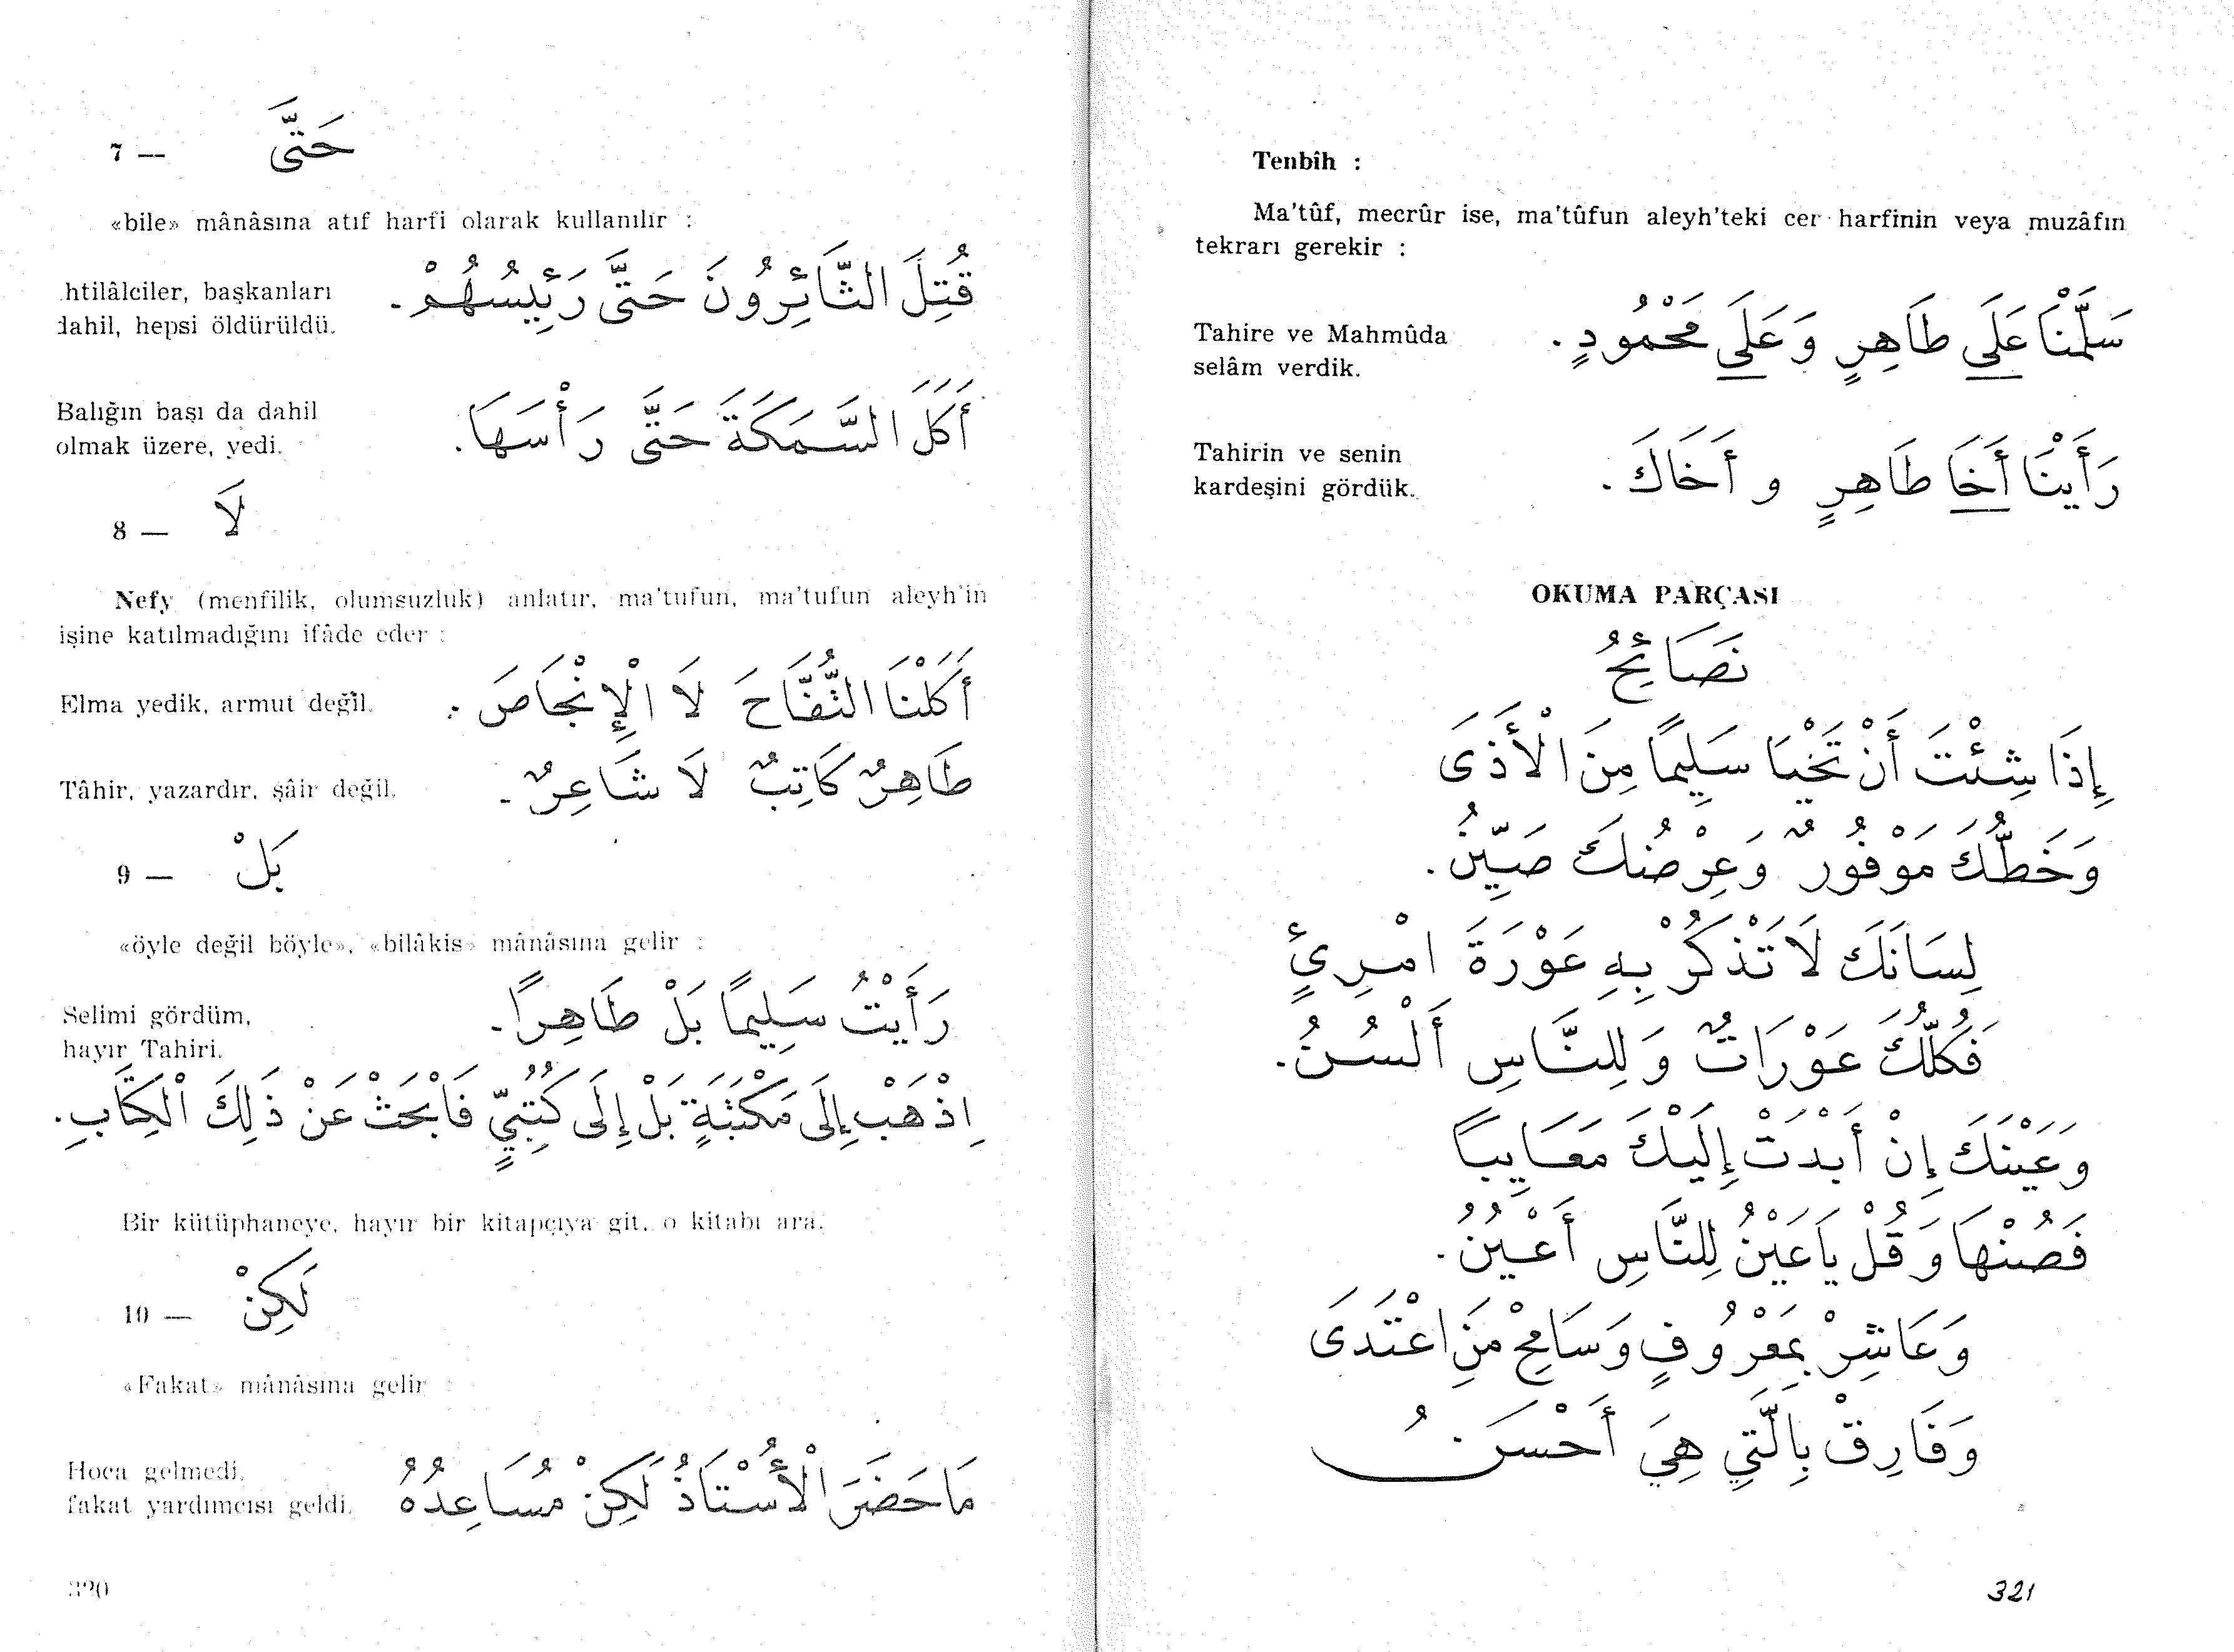 7 — حَتَّى
«bile» mânâsına atıf harfi olarak kullanılır :
htilâlciler, başkanları
dahil, hepsi öldürüldü.
قُتِلَ الثَّائِرُونَ حَتَّى رَئِيسُهُمْ.
Balığın başı da dahil
olmak üzere, yedi.
أَكَلَ السَّمَكَةَ حَتَّى رَأْسَهَا.
8 — لَا
Nefy (menfilik, olumsuzluk) anlatır, ma'tufun, ma'tufun aleyh'in
işine katılmadığını ifâde eder :
Elma yedik, armut değil.
أَكَلْنَا التُّفَّاحَ لَا الْإِنْجَاصَ .
Tâhir, yazardır, şâir değil.
طَاهِرٌ كَاتِبٌ لَا شَاعِرٌ.
9 — بَلْ
«öyle değil böyle», «bilâkis» mânâsına gelir :
Selimi gördüm,
hayır Tahiri.
رَأَيْتُ سَلِيمًا بَلْ طَاهِرًا.
اِذْهَبْ إِلَى مَكْتَبَةٍ بَلْ إِلَى كُتُبِيٍّ فَابْحَثْ عَنْ ذَلِكَ الْكِتَابِ.
Bir kütüphaneye, hayır bir kitapçıya git, o kitabı ara.
10 — لَكِنْ
«Fakat» mânâsına gelir :
Hoca gelmedi,
fakat yardımcısı geldi.
مَا حَضَرَ الْأُسْتَاذُ لَكِنْ مُسَاعِدُهُ
320
Tenbîh :
Ma'tûf, mecrûr ise, ma'tûfun aleyh'teki cer harfinin veya muzâfın
tekrarı gerekir :
Tahire ve Mahmûda
selâm verdik.
سَلَّمْنَا عَلَى طَاهِرٍ وَعَلَى مَحْمُودٍ.
Tahirin ve senin
kardeşini gördük.
رَأَيْنَا أَخَا طَاهِرٍ و أَخَاكَ.
OKUMA PARÇASI
نَصَائِحُ
إِذَا شِئْتَ أَنْ تَحْيَا سَلِيمًا مِنَ الْأَذَى
وَحَظُّكَ مَوْفُورٌ وَعِرْضُكَ صَيِّنُ.
لِسَانَكَ لَا تَذْكُرْ بِهِ عَوْرَةَ امْرِئٍ
فَكُلُّكَ عَوْرَاتٌ وَلِلنَّاسِ أَلْسُنُ.
وَعَيْنَكَ إِنْ أَبْدَتْ إِلَيْكَ مَعَايِبًا
فَصُنْهَا وَقُلْ يَا عَيْنُ لِلنَّاسِ أَعْيُنُ.
وَعَاشِرْ بِمَعْرُوفٍ وَسَامِحْ مَنِ اعْتَدَى
وَفَارِقْ بِالَّتِي هِيَ أَحْسَنُ
321